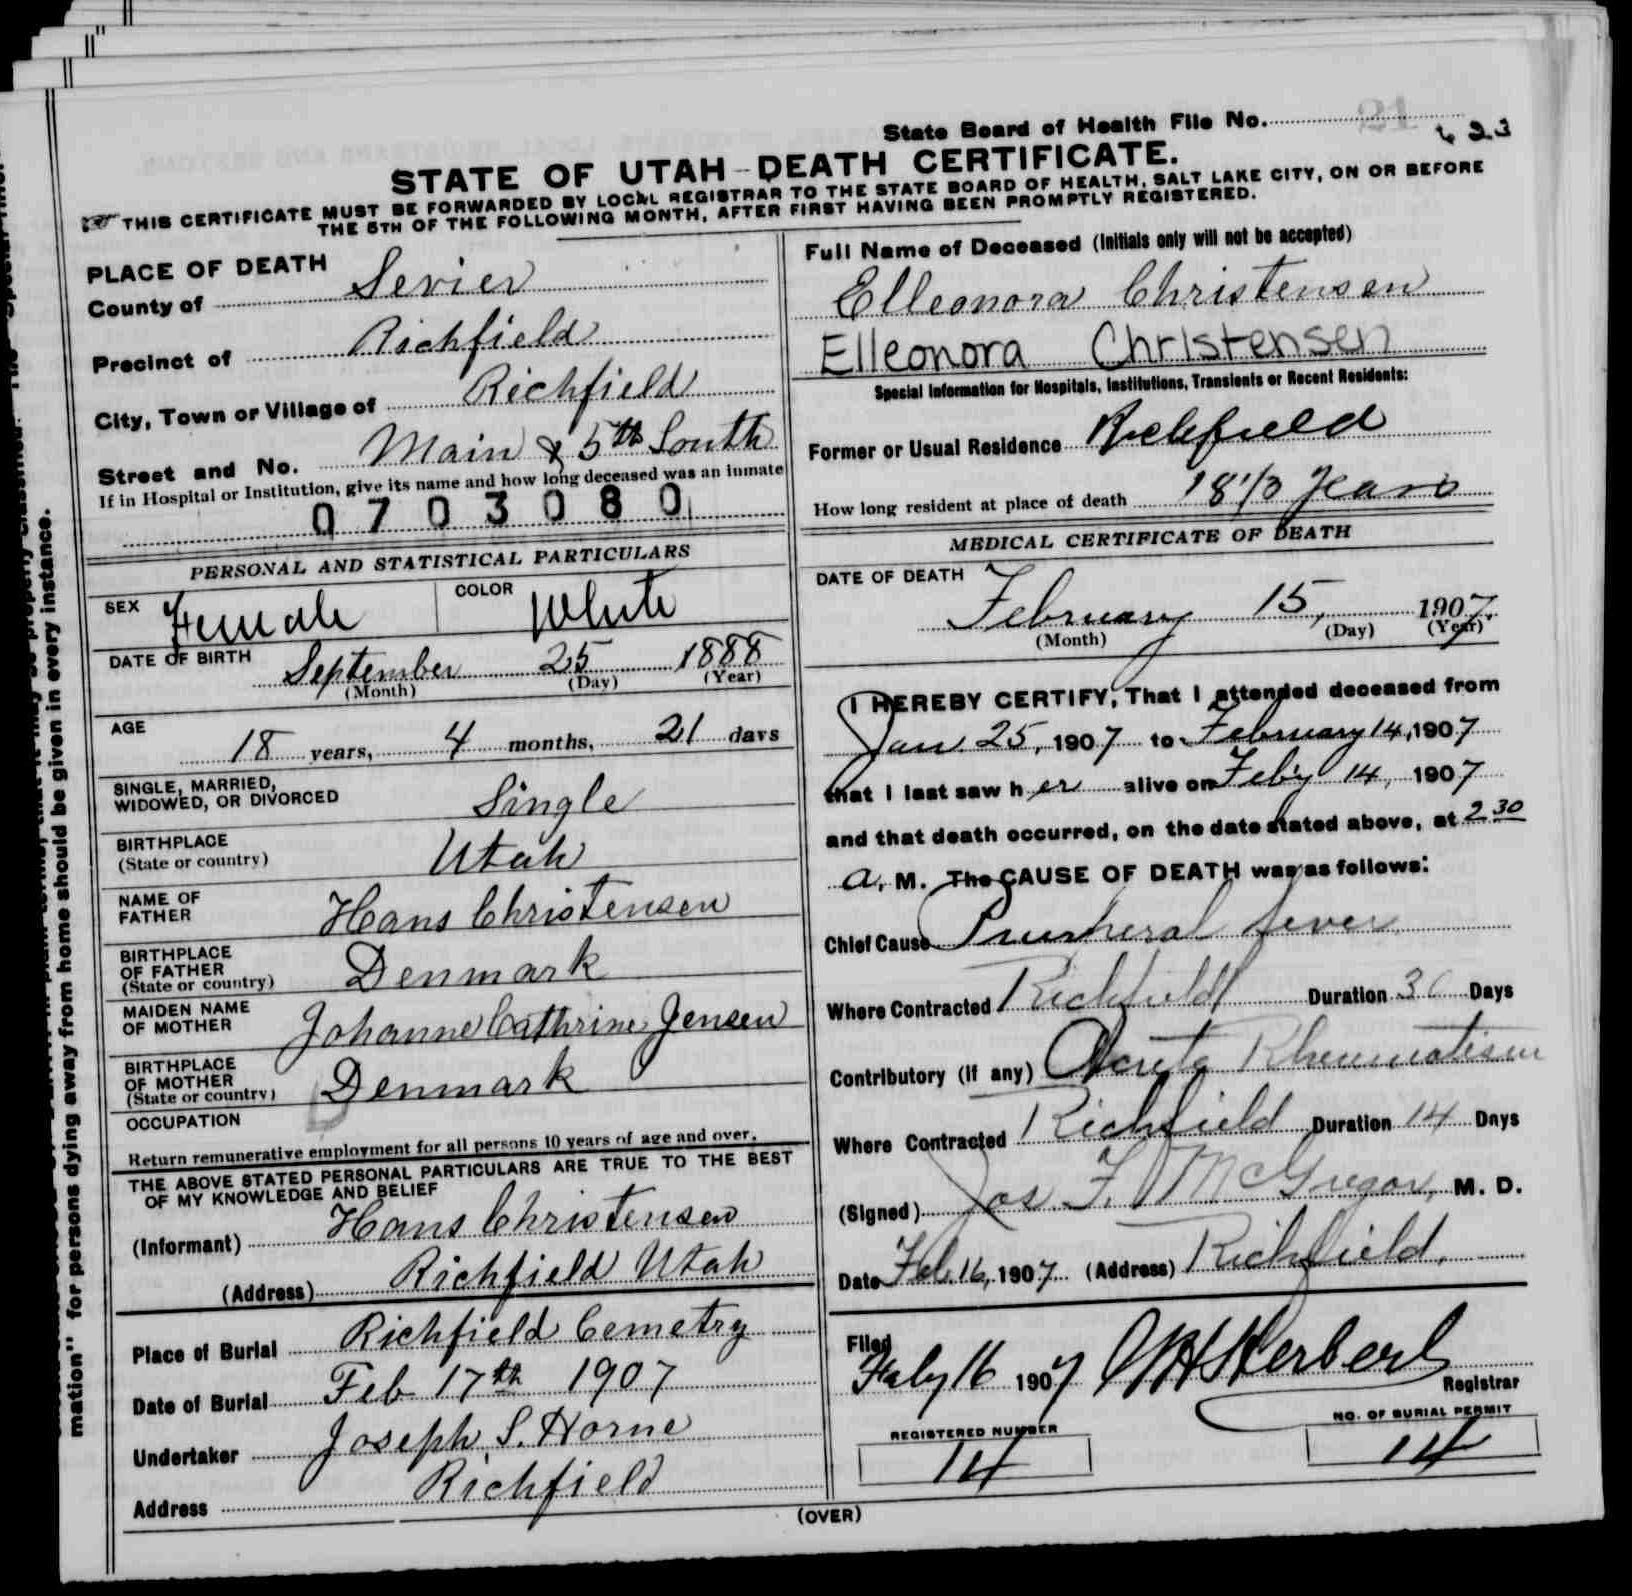 State Board of Health File No. 21
423
STATE OF UTAH—DEATH CERTIFICATE.
THIS CERTIFICATE MUST BE FORWARDED BY LOCAL REGISTRAR TO THE STATE BOARD OF HEALTH, SALT LAKE CITY, ON OR BEFORE
THE 5TH OF THE FOLLOWING MONTH, AFTER FIRST HAVING BEEN PROMPTLY REGISTERED.
PLACE OF DEATH
County of Sevier
Precinct of Richfield
City, Town or Village of Richfield
Street and No. Main & 5th South
If in Hospital or Institution, give its name and how long deceased was an inmate
0703080
PERSONAL AND STATISTICAL PARTICULARS
SEX Female COLOR White
DATE OF BIRTH September 25 1888
(Month) (Day) (Year)
AGE 18 years, 4 months, 21 days
SINGLE, MARRIED,
WIDOWED, OR DIVORCED Single
BIRTHPLACE
(State or country) Utah
NAME OF
FATHER Hans Christensen
BIRTHPLACE
OF FATHER
(State or country) Denmark
MAIDEN NAME
OF MOTHER Johanne Cathrine Jensen
BIRTHPLACE
OF MOTHER
(State or country) Denmark
OCCUPATION
Return remunerative employment for all persons 10 years of age and over.
THE ABOVE STATED PERSONAL PARTICULARS ARE TRUE TO THE BEST
OF MY KNOWLEDGE AND BELIEF
(Informant) Hans Christensen
(Address) Richfield Utah
Place of Burial Richfield Cemetry
Date of Burial Feb 17th 1907
Undertaker Joseph S. Horne
Address Richfield
Full Name of Deceased (Initials only will not be accepted)
Elleonora Christensen
Elleonora Christensen
Special Information for Hospitals, Institutions, Transients or Recent Residents:
Former or Usual Residence Richfield
How long resident at place of death 18 1/3 Years
MEDICAL CERTIFICATE OF DEATH
DATE OF DEATH
February 15, 1907
(Month) (Day) (Year)
I HEREBY CERTIFY, That I attended deceased from
Jan 25, 1907 to February 14, 1907
that I last saw her alive on Feb'y 14, 1907
and that death occurred, on the date stated above, at 2 30
a. M. The CAUSE OF DEATH was as follows:
Chief Cause Puerperal fever
Where Contracted Richfield Duration 30 Days
Contributory (if any) Acute Rheumatism
Where Contracted Richfield Duration 14 Days
(Signed) Jos. F. McGregor, M. D.
Date Feb. 16, 1907 (Address) Richfield.
Filed
Feby 16 1907 Herbert
Registrar
REGISTERED NUMBER
14
NO. OF BURIAL PERMIT
14
(OVER)
mation" for persons dying away from home should be given in every instance.